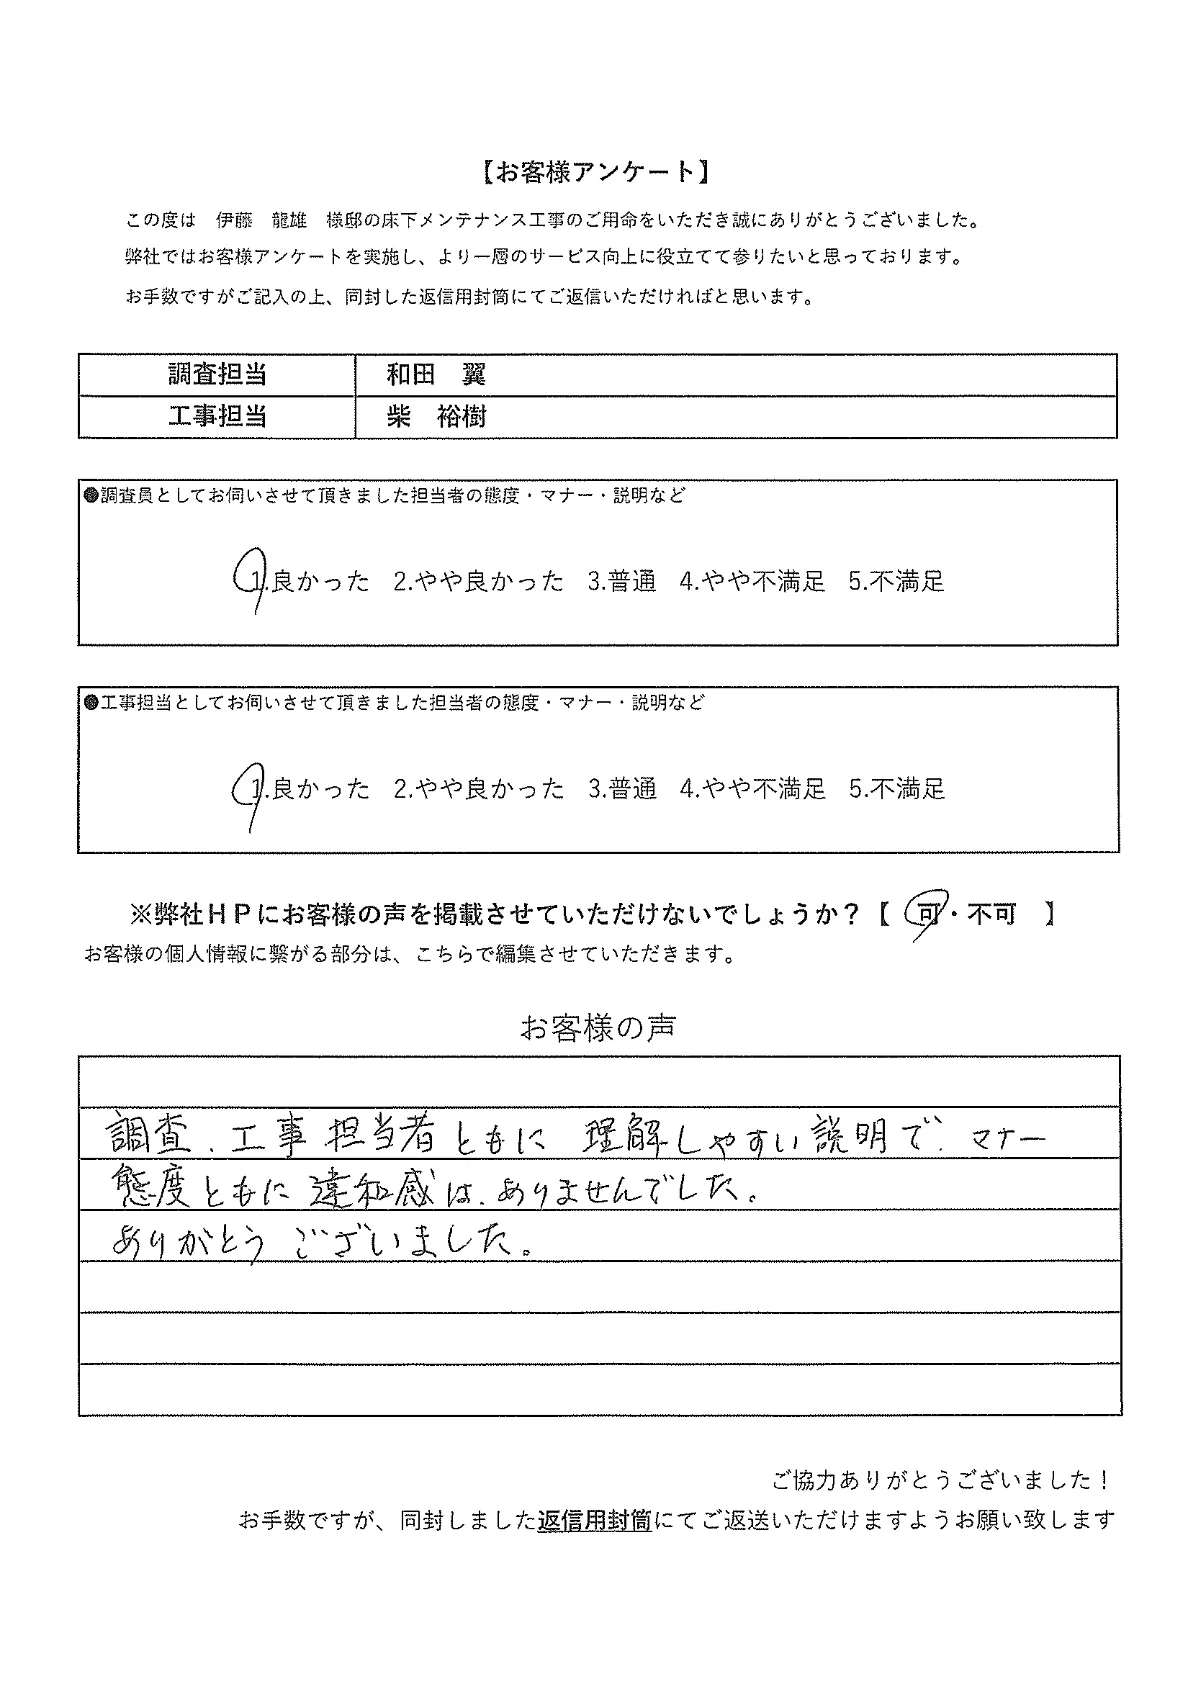 【お客様アンケート】
この度は　伊藤　龍雄　様邸の床下メンテナンス工事のご用命をいただき誠にありがとうございました。
弊社ではお客様アンケートを実施し、より一層のサービス向上に役立てて参りたいと思っております。
お手数ですがご記入の上、同封した返信用封筒にてご返信いただければと思います。
調査担当　和田　翼
工事担当　柴　裕樹
●調査員としてお伺いさせて頂きました担当者の態度・マナー・説明など
1.良かった　2.やや良かった　3.普通　4.やや不満足　5.不満足
●工事担当としてお伺いさせて頂きました担当者の態度・マナー・説明など
1.良かった　2.やや良かった　3.普通　4.やや不満足　5.不満足
※弊社ＨＰにお客様の声を掲載させていただけないでしょうか？【　可・不可　】
お客様の個人情報に繋がる部分は、こちらで編集させていただきます。
お客様の声
調査、工事担当者ともに 理解しやすい説明で、マナー
態度ともに違和感は、ありませんでした。
ありがとう ございました。
ご協力ありがとうございました！
お手数ですが、同封しました返信用封筒にてご返送いただけますようお願い致します